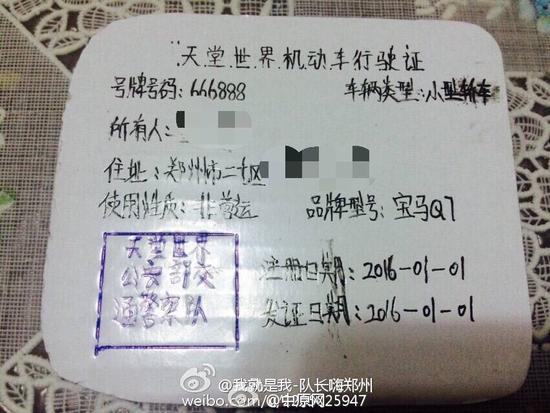 天堂世界机动车行驶证
号牌号码:666888 车辆类型:小型轿车
所有人:
住址:郑州市二七区
使用性质:非营运 品牌型号:宝马Q7
天堂世界
公安部交
通警察队
注册日期:2016-01-01
发证日期:2016-01-01
@我就是我-队长嗨郑州
@中原网